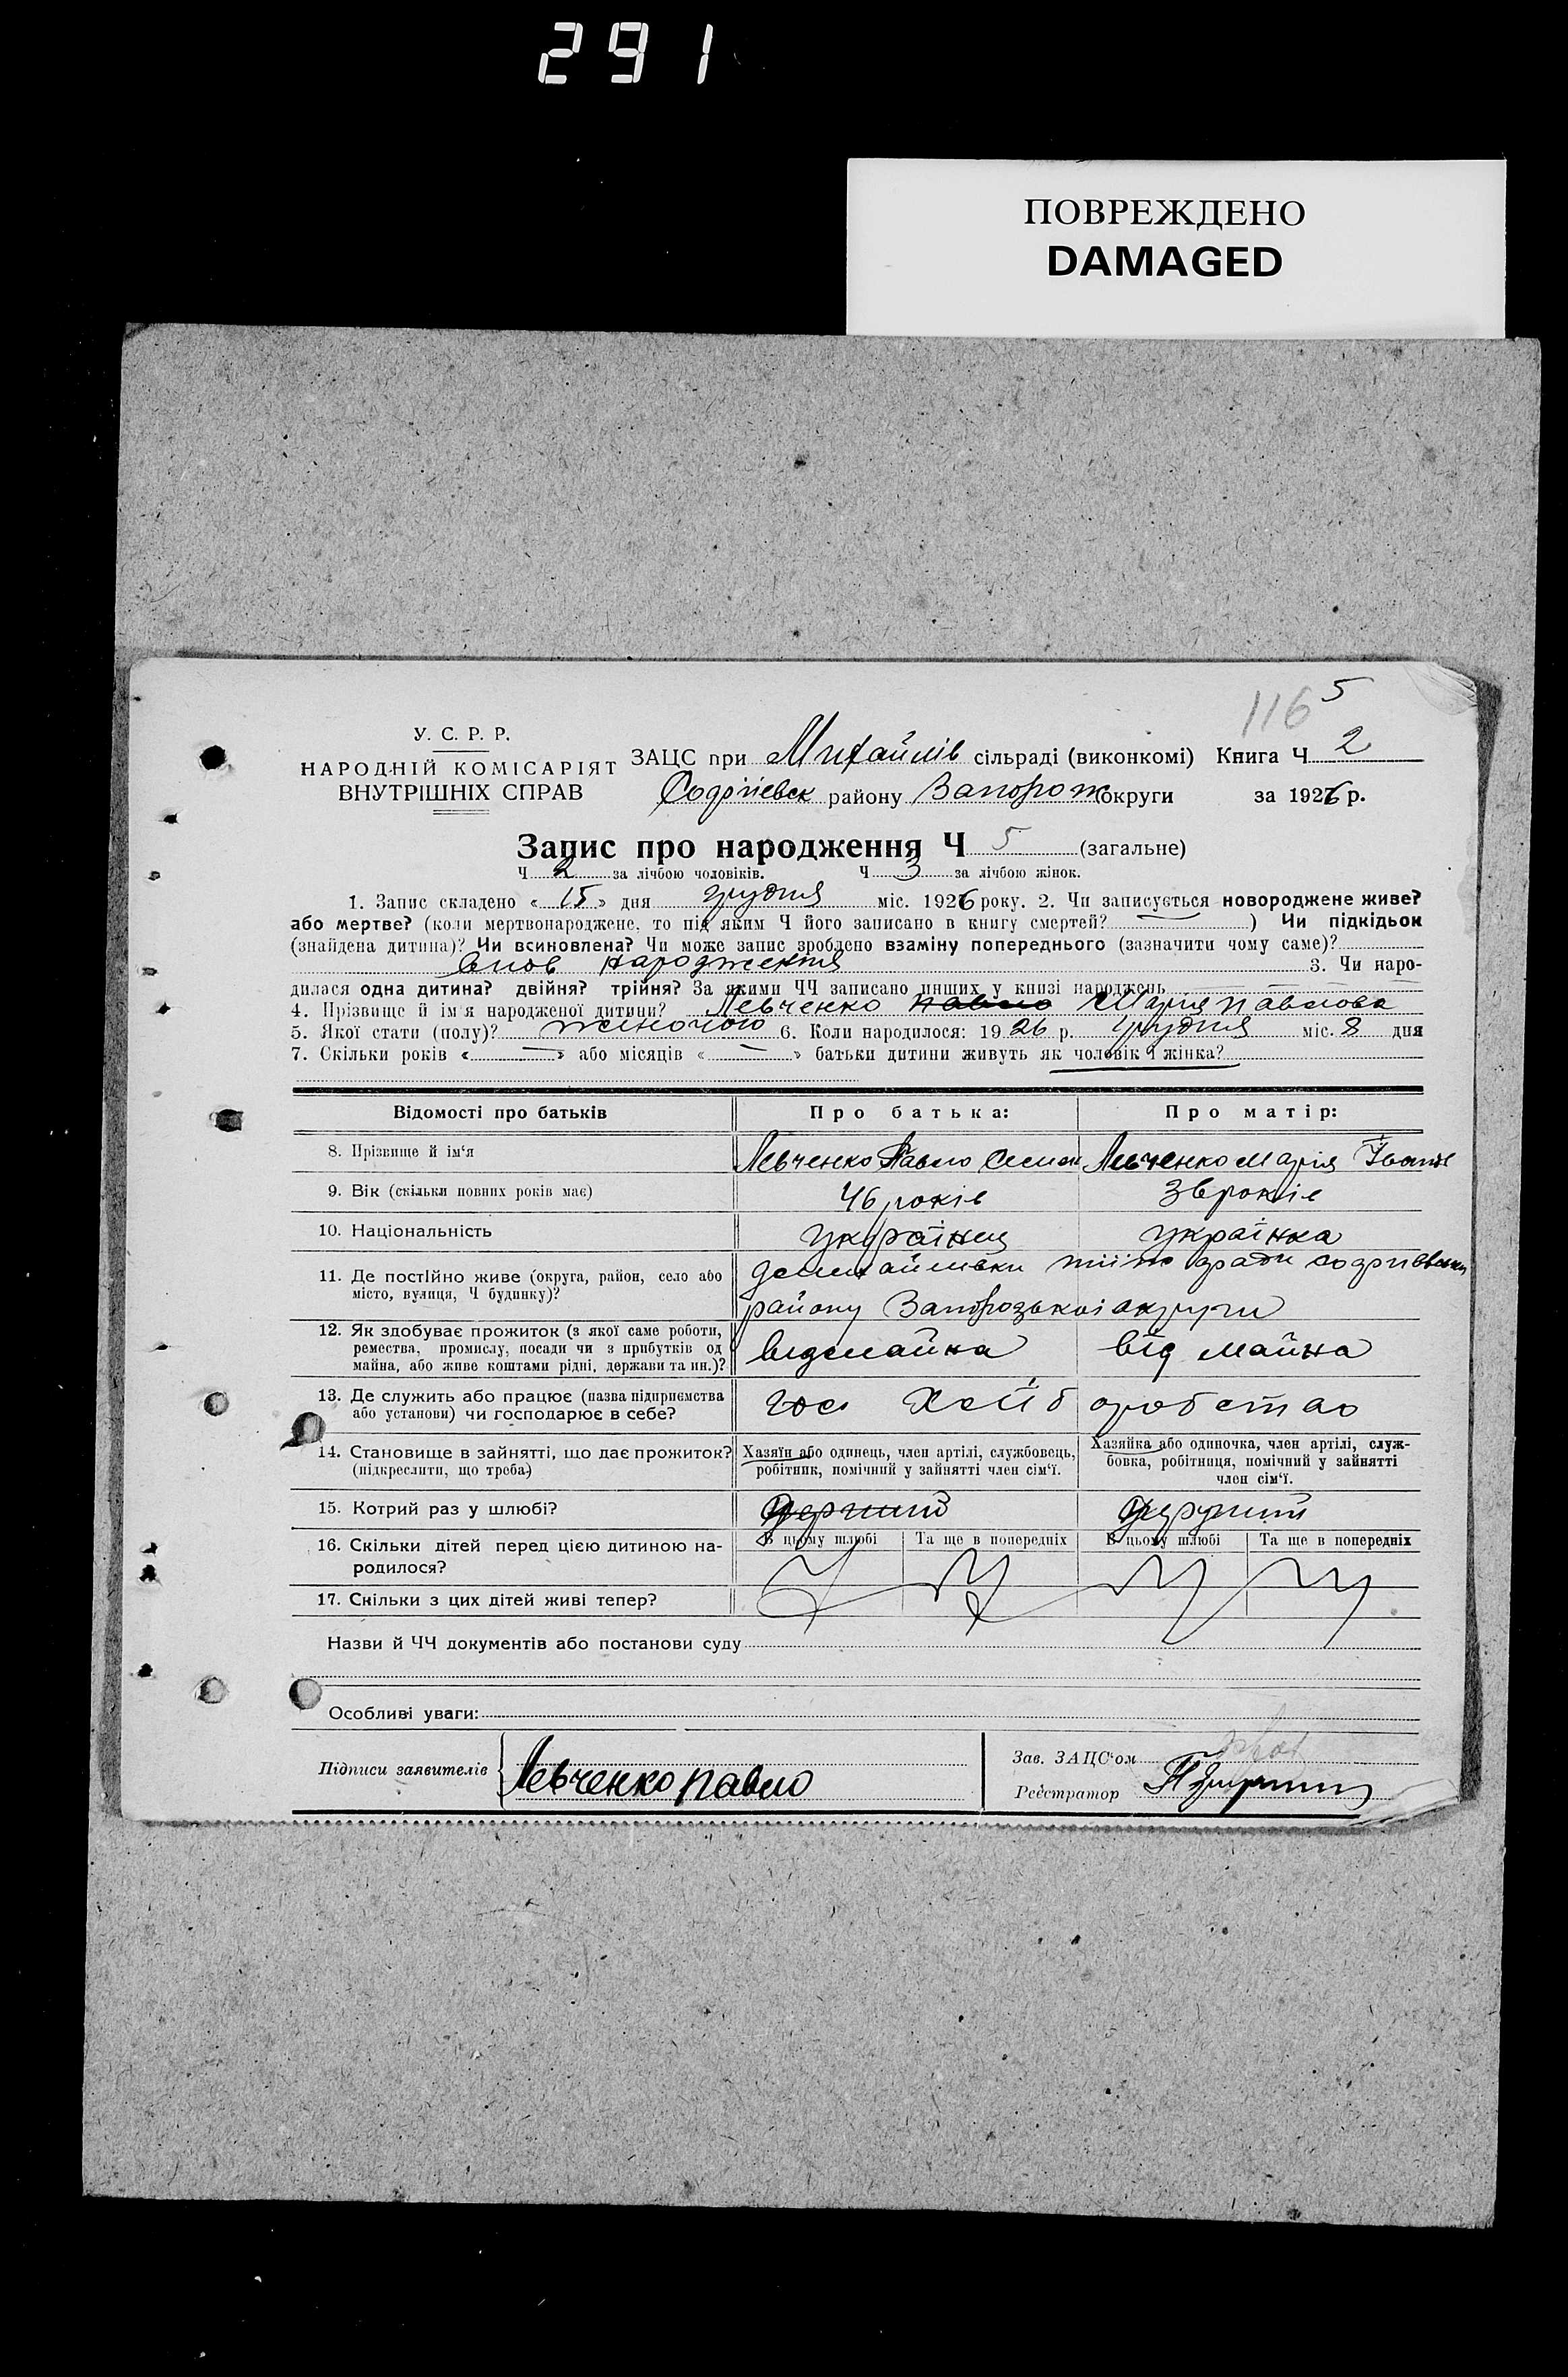 291
ПОВРЕЖДЕНО
DAMAGED
116 5
У. С. Р. Р.
НАРОДНІЙ КОМІСАРІЯТ
ВНУТРІШНІХ СПРАВ
ЗАЦС при Михайлів сільраді (виконкомі) Книга Ч 2
району Запорож округи за 1926 р.
Запис про народження Ч 5 (загальне)
Ч 2 за лічбою чоловіків. Ч 3 за лічбою жінок.
1. Запис складено « 15 » дня грудня міс. 1926 року. 2. Чи записується новороджене живе?
або мертве? (коли мертвонароджене, то під яким Ч його записано в книгу смертей? — ) Чи підкідьок
(знайдена дитина)? Чи всиновлена? Чи може запис зроблено взаміну попереднього (зазначити чому саме)?
народження 3. Чи наро-
дилася одна дитина? двійня? трійня? За якими ЧЧ записано инших у книзі народжень — —
4. Прізвище й ім'я народженої дитини? Левченко Павло Марія Павлова
5. Якої стати (полу)? жіночою 6. Коли народилося: 1926 р. грудня міс. 8 дня
7. Скільки років « — » або місяців « — » батьки дитини живуть як чоловік і жінка?
Відомості про батьків Про батька: Про матір:
8. Прізвище й ім'я Левченко Павло Семен Левченко Марія Іванів
9. Вік (скільки повних років має) 46 років 36 років
10. Національність українец українка
11. Де постійно живе (округа, район, село або
місто, вулиця, Ч будинку)?
району Запорозької округи
12. Як здобуває прожиток (з якої саме роботи,
ремества, промислу, посади чи з прибутків од
майна, або живе коштами рідні, держави та ин.)? відмайна від майна
13. Де служить або працює (назва підприємства
або установи) чи господарює в себе?
14. Становище в зайнятті, що дає прожиток?
(підкреслити, що треба)
Хазяїн або одинець, член артілі, службовець,
робітник, помічний у зайнятті член сім'ї.
Хазяйка або одиночка, член артілі, служ-
бовка, робітниця, помічний у зайнятті
член сім'ї.
15. Котрий раз у шлюбі?
16. Скільки дітей перед цією дитиною на-
родилося?
В цьому шлюбі Та ще в попередніх В цьому шлюбі Та ще в попередніх
17. Скільки з цих дітей живі тепер?
Назви й ЧЧ документів або постанови суду
Особливі уваги:
Підписи заявителів Левченко Павло
Зав. ЗАЦС'ом
Реєстратор